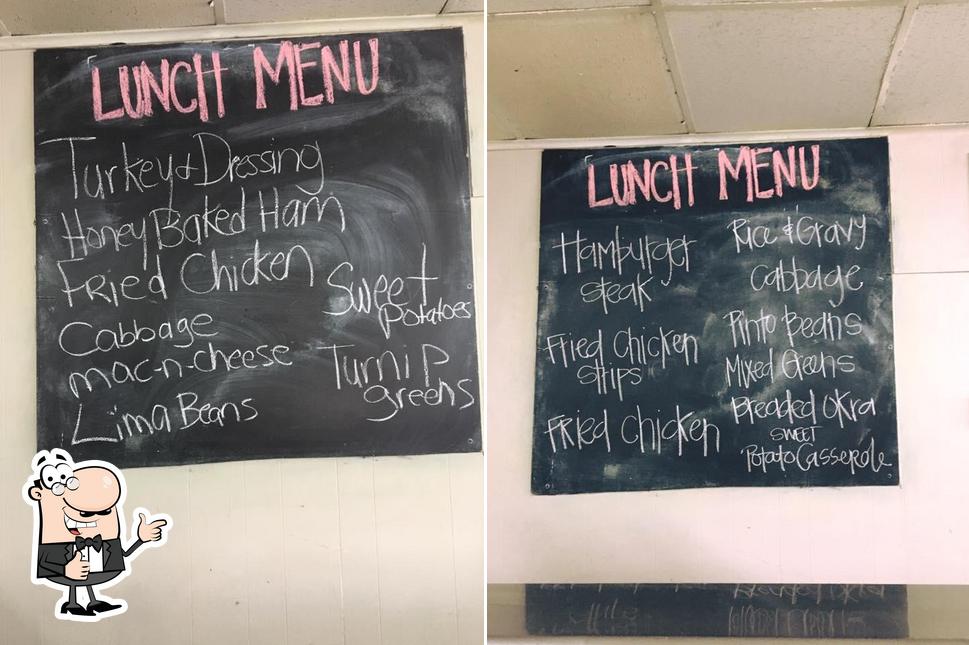 LUNCH MENU
Turkey & Dressing
Honey Baked Ham
Fried Chicken
Cabbage
mac-n-cheese
Lima Beans
Sweet
potatoes
Turnip
greens
LUNCH MENU
Hamburger
steak
Fried Chicken
strips
Fried Chicken
Rice & Gravy
cabbage
Pinto Beans
Mixed Greens
Breaded Okra
SWEET
Potato Casserole